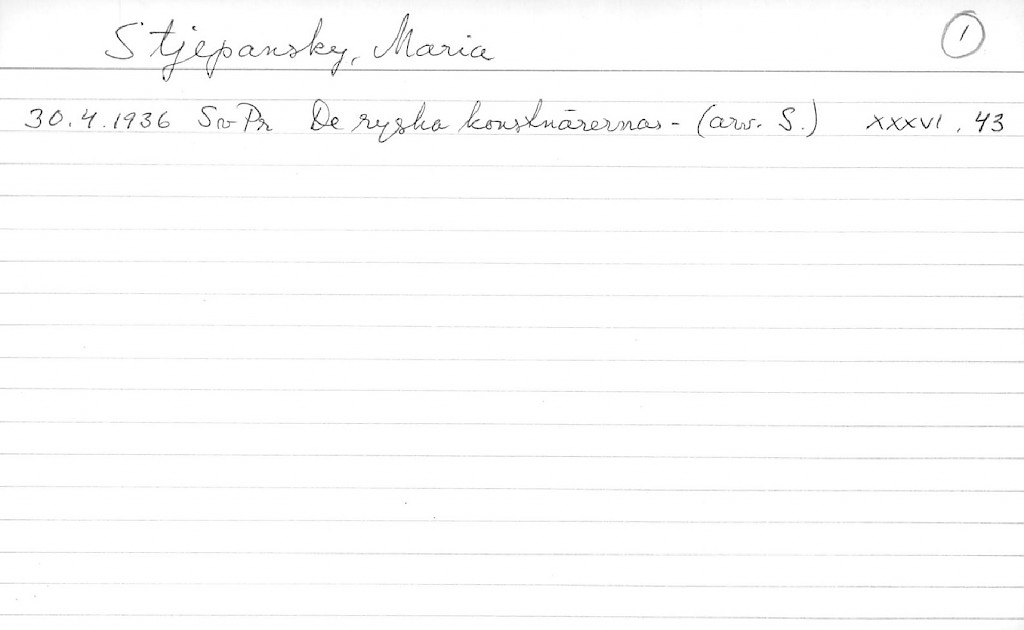 Stjepansky, Maria 1
30.4.1936 SvPr De ryska konstnärernas - (arv. S.) XXXVI, 43